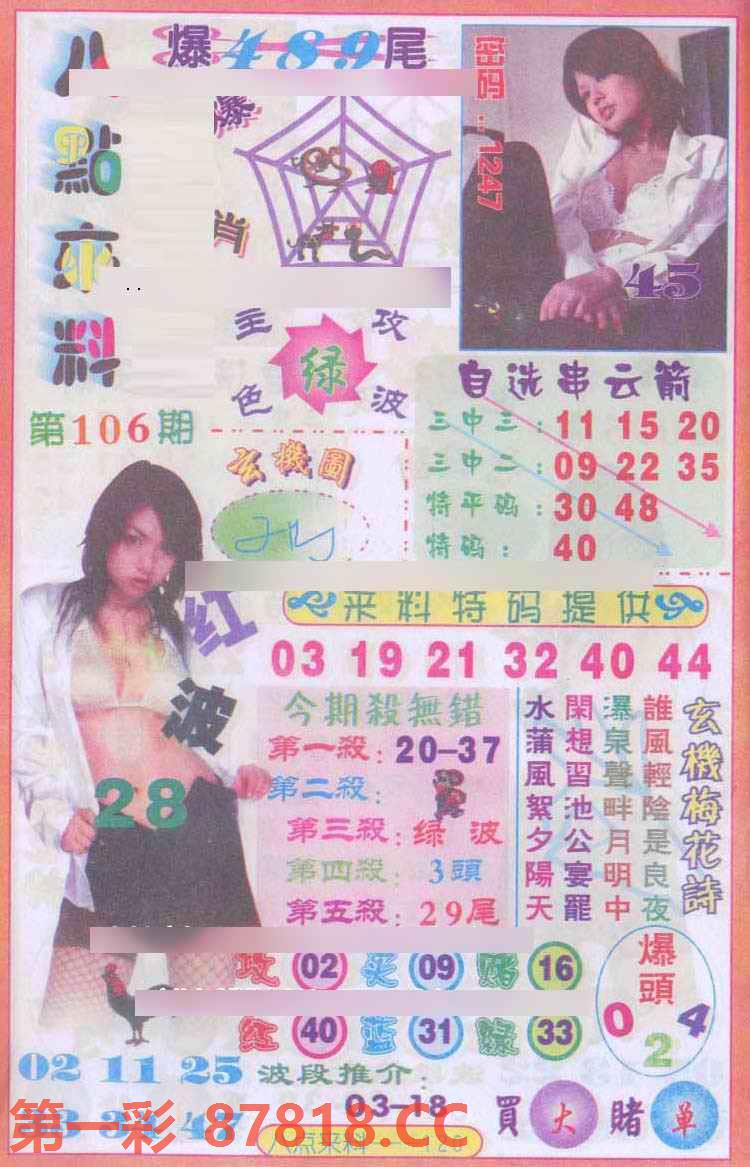 爆489尾
八點來料
爆肖
密码：1247
45
主攻
绿
色波
第106期
玄機圖
自选串云箭
三中三：11 15 20
三中二：09 22 35
特平码：30 48
特码：40
来料特码提供
03 19 21 32 40 44
红波
28
今期殺無錯
第一殺：20-37
第二殺：
第三殺：绿波
第四殺：3頭
第五殺：29尾
玄機梅花詩
誰風輕陰是良夜
瀑泉聲畔月明中
閑想習池公宴罷
水蒲風絮夕陽天
攻 02 买 09 赌 16
红 40 蓝 31 綠 33
爆頭
0 2 4
02 11 25
波段推介：
03-18
買大賭单
第一彩 87818.CC
八点来料